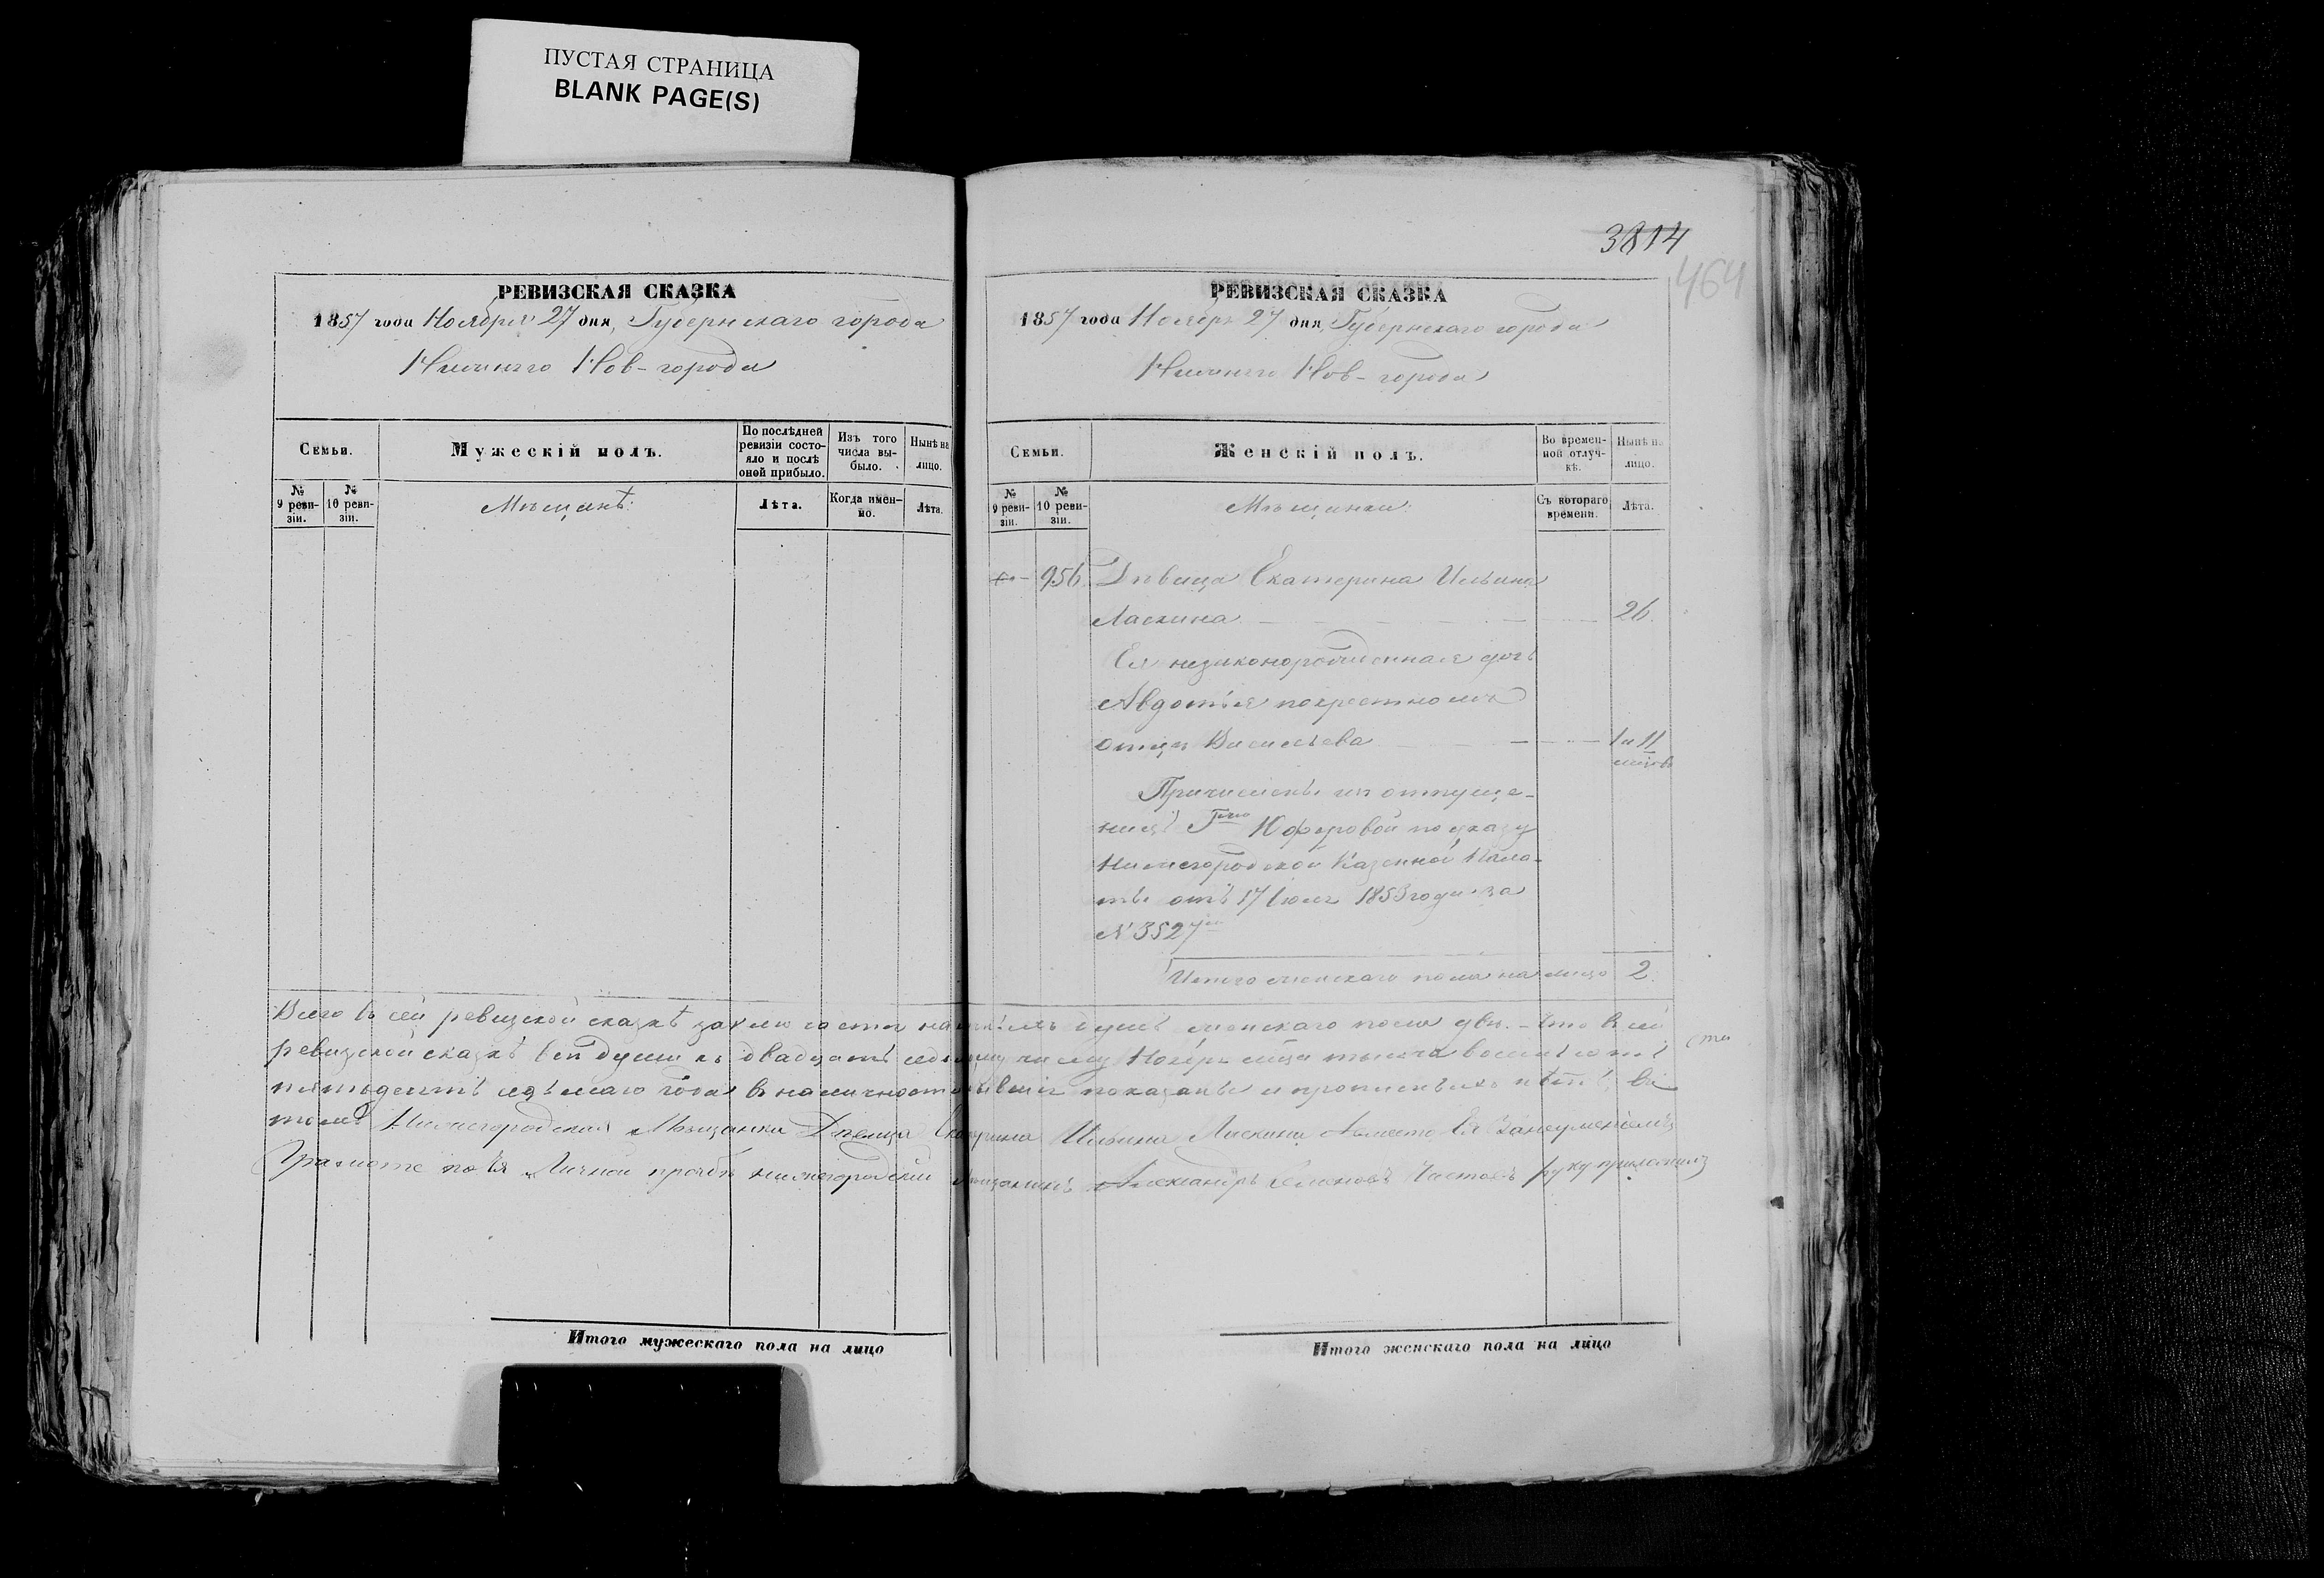 ПУСТАЯ СТРАНИЦА
BLANK PAGE(S)
РЕВИЗСКАЯ СКАЗКА
1857 года Ноября 27 дня, Губернскаго города
Нижняго Нов-города
Семьи.
Мужескій полъ.
По послѣдней ревизіи состояло и послѣ оной прибыло.
Изъ того числа выбыло.
Нынѣ на лицо.
№ 9 ревизіи.
№ 10 ревизіи.
Мѣщанѣ:
Лѣта.
Когда именно.
Лѣта.
Итого мужескаго пола на лицо
3814
464
РЕВИЗСКАЯ СКАЗКА
1857 года Ноябр 27 дня, Губернскаго города
Нижняго Нов-города
Семьи.
Женскій полъ.
Во временной отлучкѣ.
Нынѣ на лицо.
№ 9 ревизіи.
№ 10 ревизіи.
Мѣщанки:
Съ котораго времени.
Лѣта.
956. Дѣвица Екатерина Ильина
Ласкина 26.
Ея незаконорожденная дочь
Авдотья по крестному
отцу Васильева 1 и 11
мѣсяцовъ
Причислены изъ отпуще-
ницъ Гжо Юферовой по указу
Нижегородской Казенной Пала-
ты отъ 17 Іюля 1853 года за
№ 3527
Итого женскаго пола на лицо 2.
Всего въ сей ревизской сказкѣ заключается наличныхъ душъ женскаго пола двѣ. – Что въ сей
ревизской сказкѣ всѣ души къ двадцать седьмому числу Ноября мца тысяча восемь сотъ
пятьдесятъ седьмаго года въ наличности бывшія показаны и прописныхъ нѣтъ, въ
томъ Нижегородская Мѣщанка Дѣвица Екатерина Ильина Ласкина А вместо Ея Занеуменіемъ
Грамоте по Ея Личной прозбѣ нижегородскій мѣщанинъ Александръ Семеновъ Чистовъ руку приложилъ
Итого женскаго пола на лицо